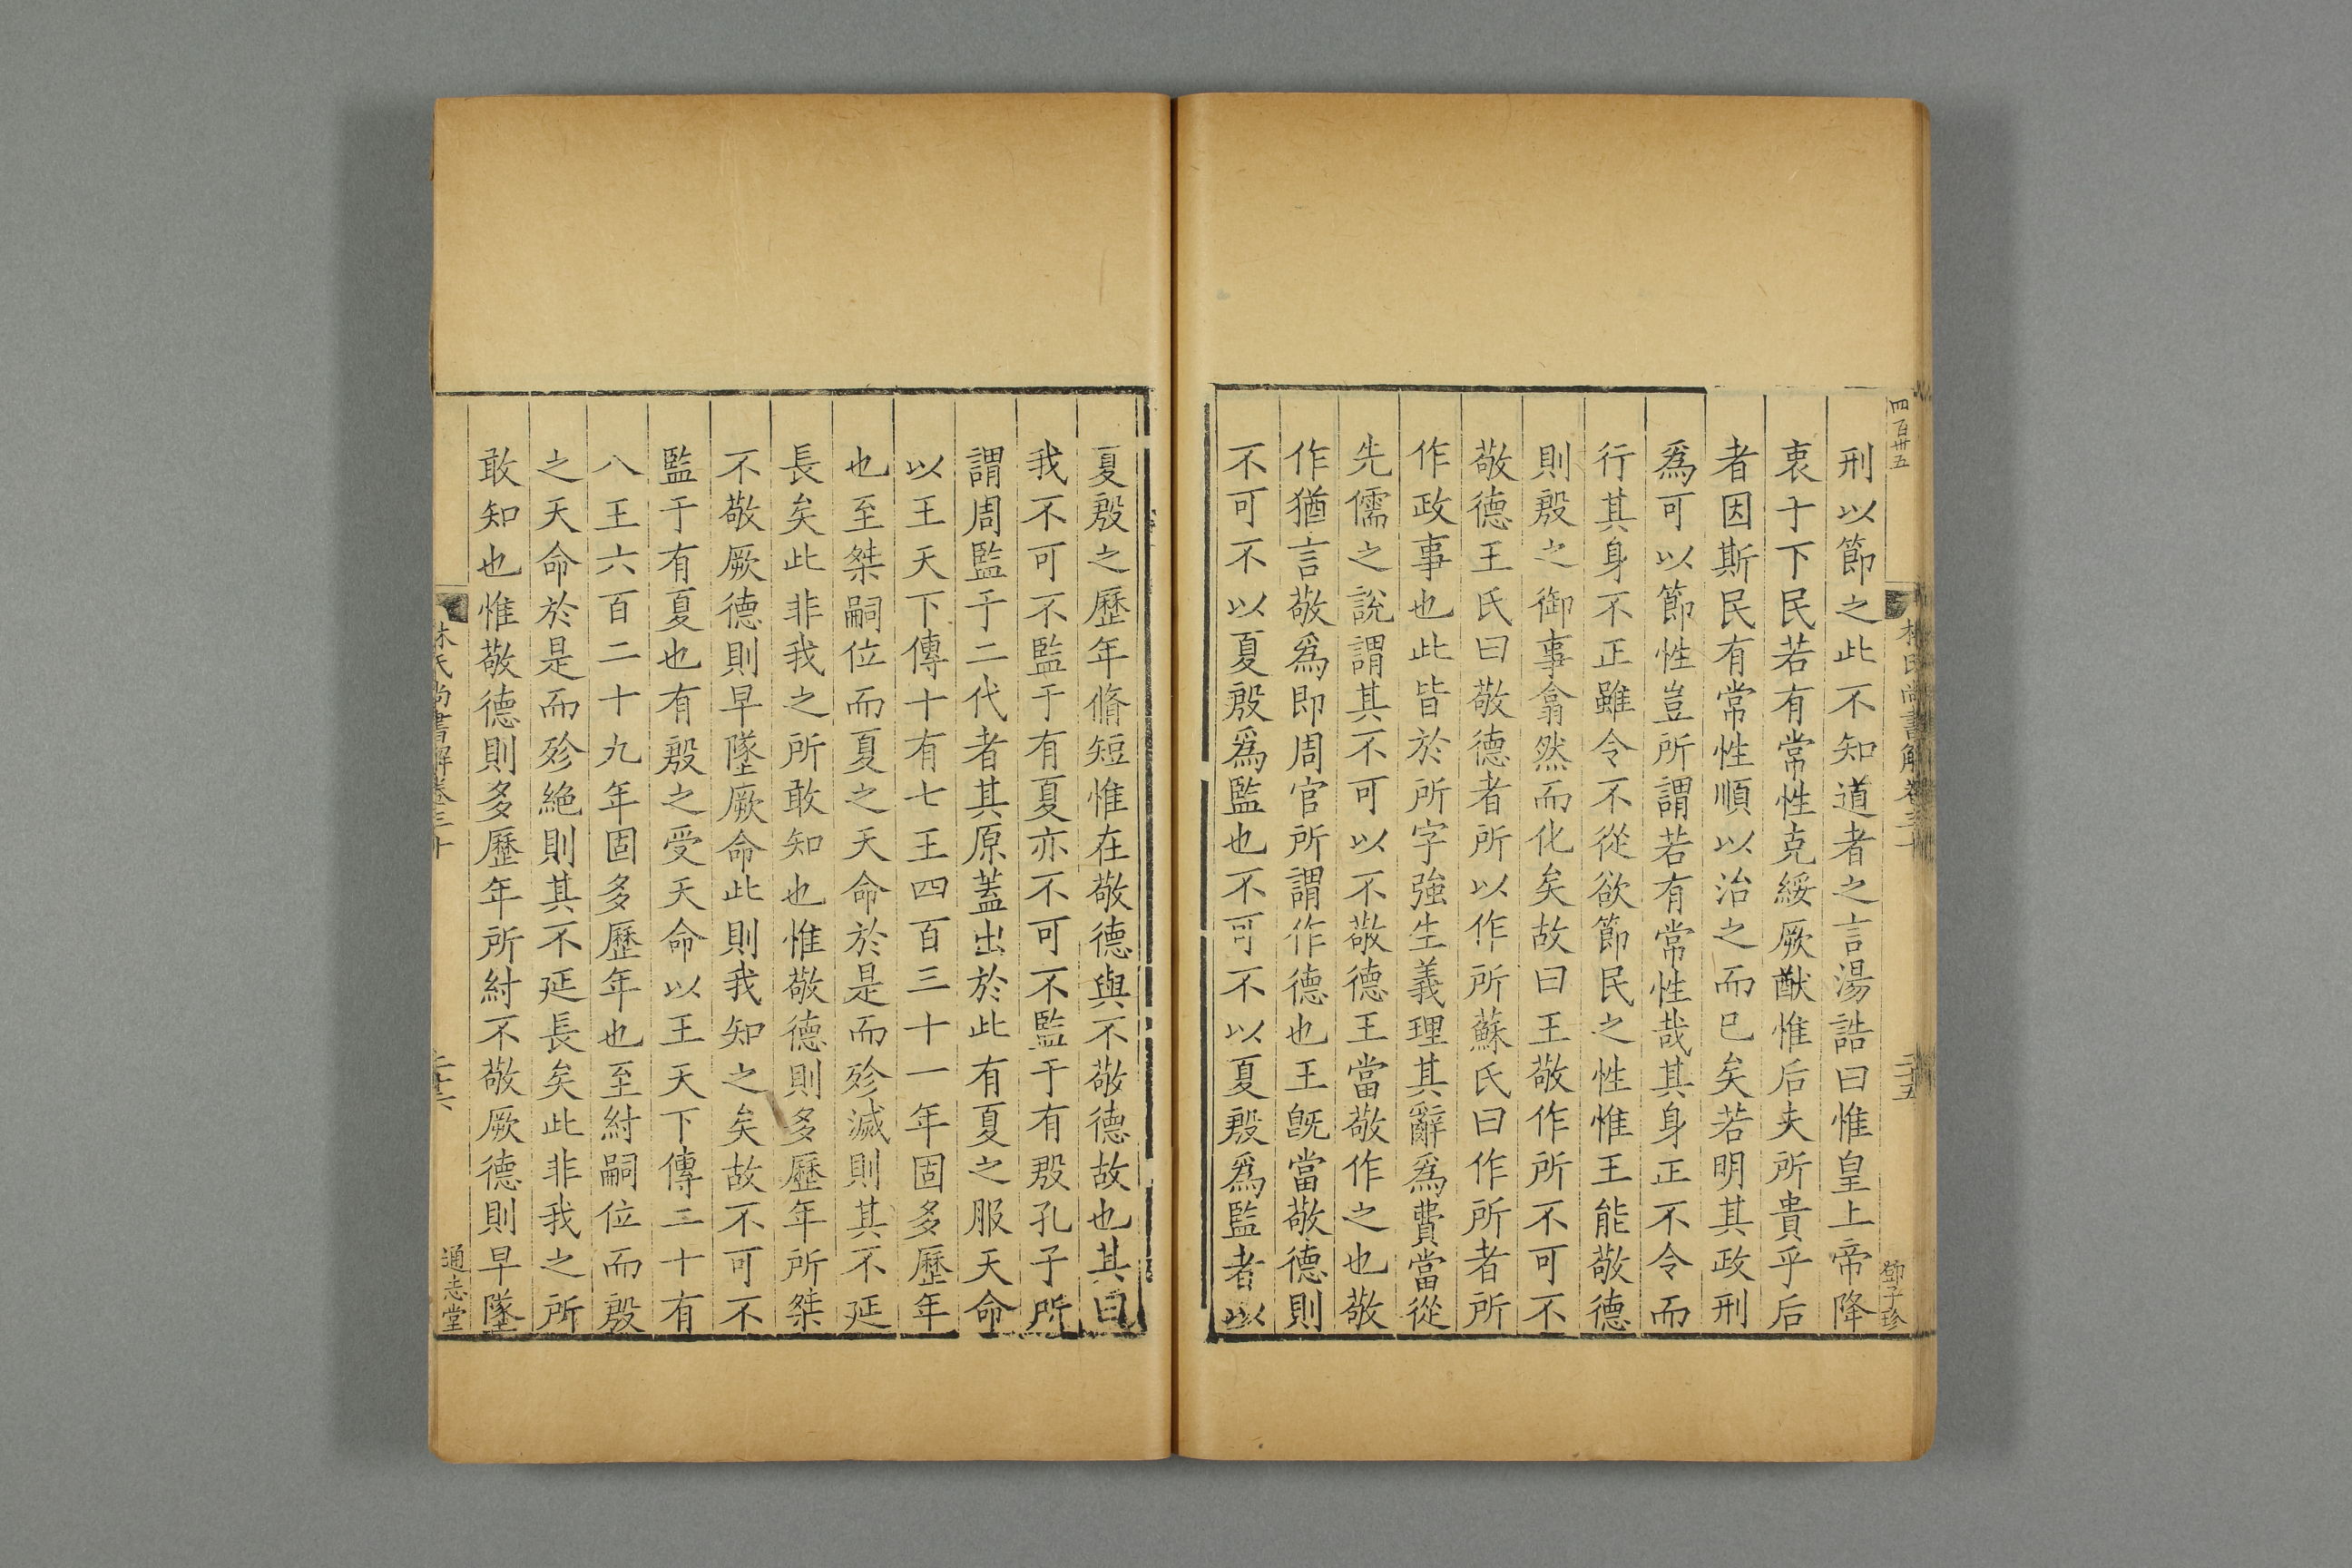 四百卅五
林氏尚書解卷三十
二十五
鄧子珍
刑以節之此不知道者之言湯誥曰惟皇上帝降
衷于下民若有常性克綏厥猷惟后夫所貴乎后
者因斯民有常性順以治之而已矣若明其政刑
爲可以節性豈所謂若有常性哉其身正不令而
行其身不正雖令不從欲節民之性惟王能敬德
則殷之御事翕然而化矣故曰王敬作所不可不
敬德王氏曰敬德者所以作所蘇氏曰作所者所
作政事也此皆於所字強生義理其辭爲費當從
先儒之說謂其不可以不敬德王當敬作之也敬
作猶言敬爲即周官所謂作德也王旣當敬德則
不可不以夏殷爲監也不可不以夏殷爲監者以
夏殷之歷年脩短惟在敬德與不敬德故也其曰
我不可不監于有夏亦不可不監于有殷孔子所
謂周監于二代者其原蓋出於此有夏之服天命
以王天下傳十有七王四百三十一年固多歷年
也至桀嗣位而夏之天命於是而殄滅則其不延
長矣此非我之所敢知也惟敬德則多歷年所桀
不敬厥德則早墜厥命此則我知之矣故不可不
監于有夏也有殷之受天命以王天下傳二十有
八王六百二十九年固多歷年也至紂嗣位而殷
之天命於是而殄絕則其不延長矣此非我之所
敢知也惟敬德則多歷年所紂不敬厥德則早墜
林氏尚書解卷三十
二十六
通志堂